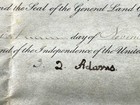 and the Seal of the General Land O
day of
and of the Independence of the United
J. Q. Adams.